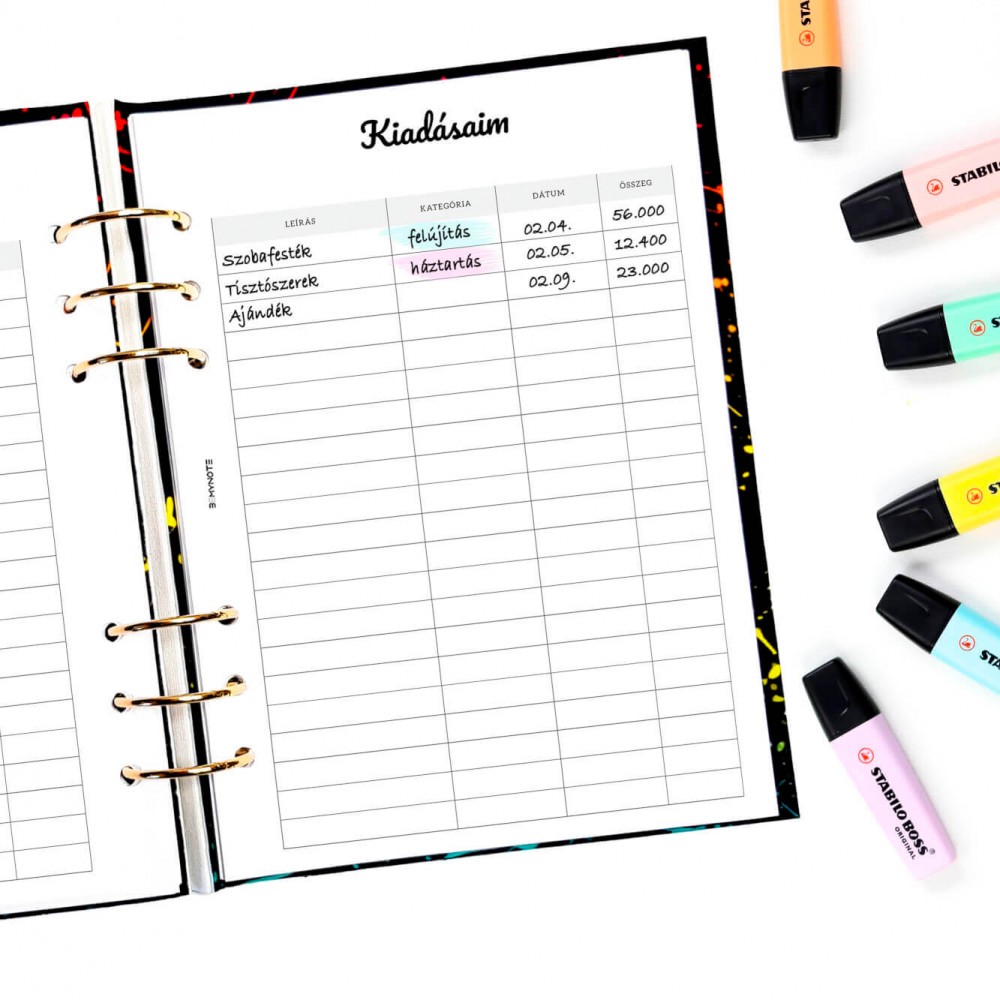 Kiadásaim
LEÍRÁS KATEGÓRIA DÁTUM ÖSSZEG
Szobafesték felújítás 02.04. 56.000
Tisztószerek háztartás 02.05. 12.400
Ajándék 02.09. 23.000
BEMYNOTE
STABILO
STABILO BOSS®
ORIGINAL